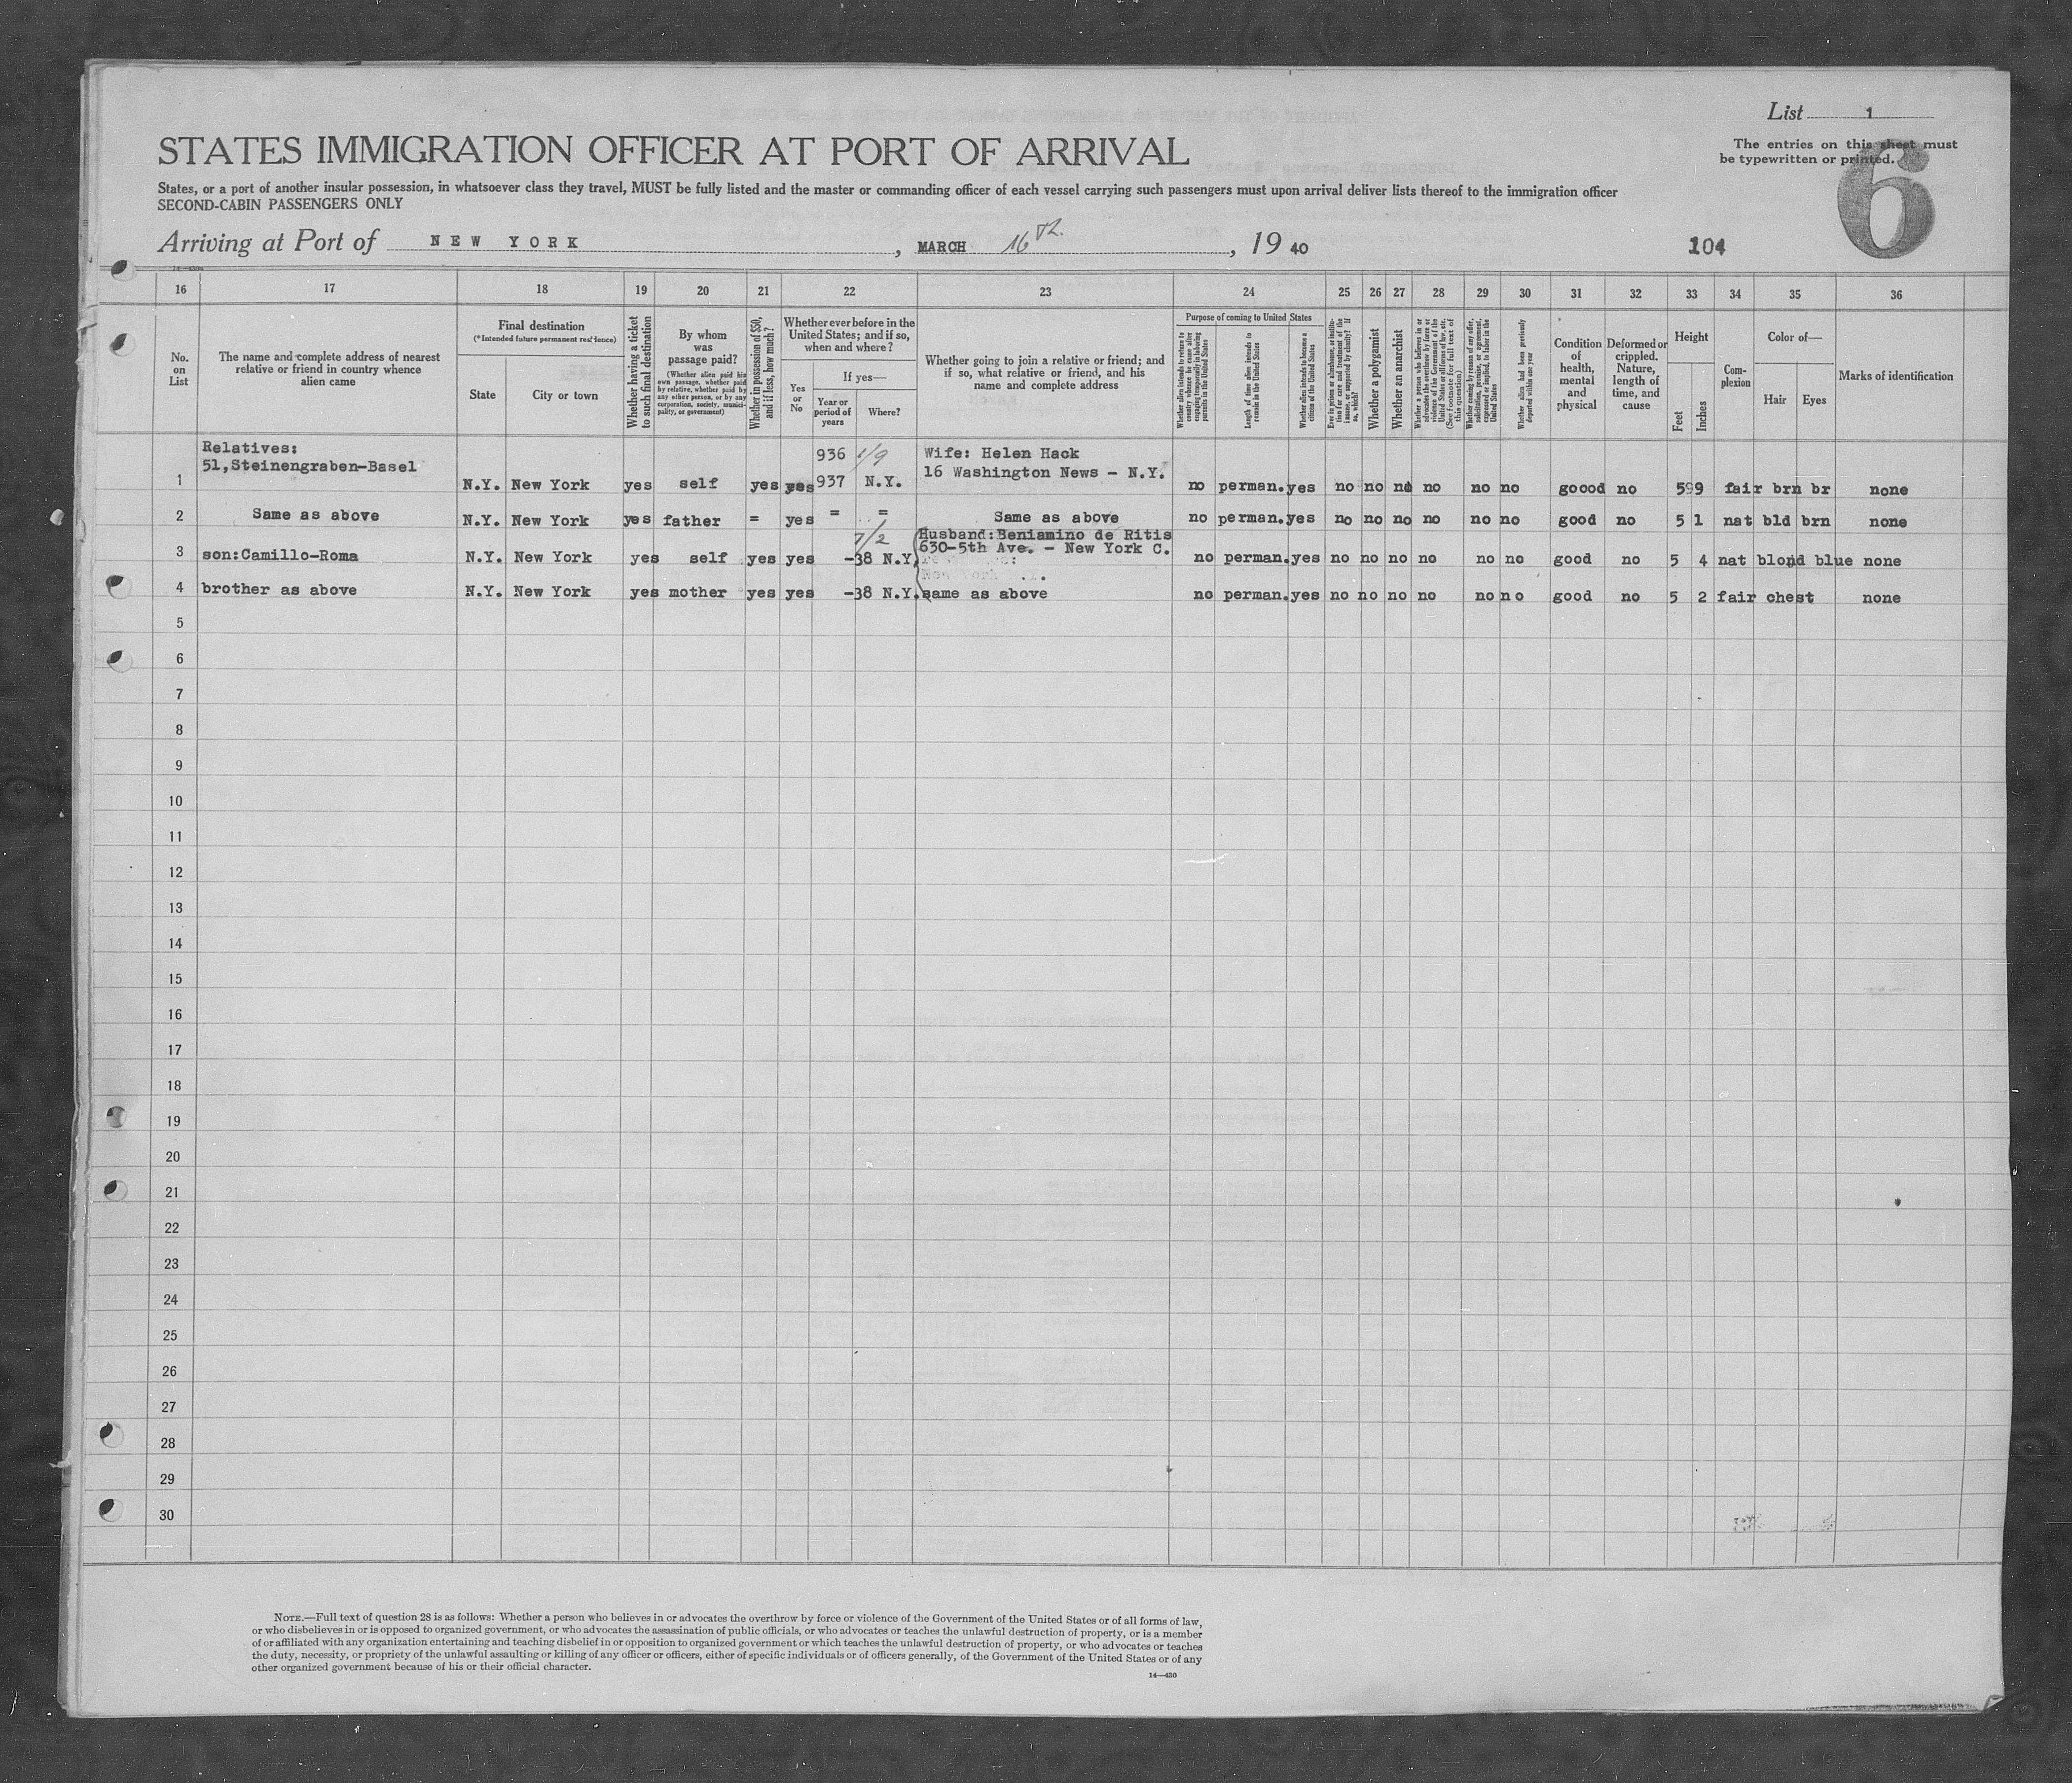 List 1
The entries on this sheet must
be typewritten or printed.
6
STATES IMMIGRATION OFFICER AT PORT OF ARRIVAL
States, or a port of another insular possession, in whatsoever class they travel, MUST be fully listed and the master or commanding officer of each vessel carrying such passengers must upon arrival deliver lists thereof to the immigration officer
SECOND-CABIN PASSENGERS ONLY
Arriving at Port of NEW YORK, MARCH 16th, 19 40
104
16 17 18 19 20 21 22 23 24 25 26 27 28 29 30 31 32 33 34 35 36
No. on List
The name and complete address of nearest relative or friend in country whence alien came
Final destination
(*Intended future permanent residence)
State
City or town
Whether having a ticket to such final destination
By whom was passage paid?
(Whether alien paid his own passage, whether paid by relative, whether paid by any other person, or by any corporation, society, municipality, or government)
Whether in possession of $50, and if less, how much?
Whether ever before in the United States; and if so, when and where?
Yes or No
If yes—
Year or period of years
Where?
Whether going to join a relative or friend; and if so, what relative or friend, and his name and complete address
Purpose of coming to United States
Length of time alien intends to remain in the United States
Whether alien intends to become a citizen of the United States
Whether a polygamist
Whether an anarchist
Whether alien had been previously deported within one year
Condition of health, mental and physical
Deformed or crippled. Nature, length of time, and cause
Height
Feet
Inches
Complexion
Color of—
Hair
Eyes
Marks of identification
Relatives: 936 1/9 Wife: Helen Hack
51,Steinengraben-Basel 16 Washington News - N.Y.
1 N.Y. New York yes self yes yes 937 N.Y. no perman. yes no no no no no no goood no 5 9 9 fair brn br none
2 Same as above N.Y. New York yes father = yes = = Same as above no perman. yes no no no no no no good no 5 1 nat bld brn none
7/2 Husband:Beniamino de Ritis
630-5th Ave. - New York C.
3 son:Camillo-Roma N.Y. New York yes self yes yes -38 N.Y. no perman. yes no no no no no no good no 5 4 nat blond blue none
4 brother as above N.Y. New York yes mother yes yes -38 N.Y. same as above no perman. yes no no no no no no good no 5 2 fair chest none
5
6
7
8
9
10
11
12
13
14
15
16
17
18
19
20
21
22
23
24
25
26
27
28
29
30
NOTE.—Full text of question 28 is as follows: Whether a person who believes in or advocates the overthrow by force or violence of the Government of the United States or of all forms of law,
or who disbelieves in or is opposed to organized government, or who advocates the assassination of public officials, or who advocates or teaches the unlawful destruction of property, or is a member
of or affiliated with any organization entertaining and teaching disbelief in or opposition to organized government or which teaches the unlawful destruction of property, or who advocates or teaches
the duty, necessity, or propriety of the unlawful assaulting or killing of any officer or officers, either of specific individuals or of officers generally, of the Government of the United States or of any
other organized government because of his or their official character.
14—430